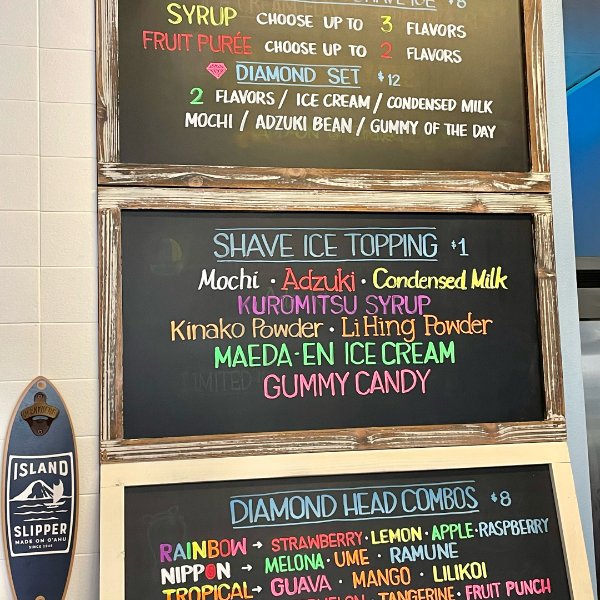 SHAVE ICE $8
SYRUP CHOOSE UP TO 3 FLAVORS
FRUIT PURÉE CHOOSE UP TO 2 FLAVORS
DIAMOND SET $12
2 FLAVORS / ICE CREAM / CONDENSED MILK
MOCHI / ADZUKI BEAN / GUMMY OF THE DAY
SHAVE ICE TOPPING $1
Mochi · Adzuki · Condensed Milk
KUROMITSU SYRUP
Kinako Powder · Li Hing Powder
MAEDA-EN ICE CREAM
GUMMY CANDY
DIAMOND HEAD COMBOS $8
RAINBOW → STRAWBERRY · LEMON · APPLE · RASPBERRY
NIPPON → MELONA · UME · RAMUNE
TROPICAL → GUAVA · MANGO · LILIKOI
TANGERINE · FRUIT PUNCH
ISLAND
SLIPPER
MADE ON O'AHU
SINCE 1946